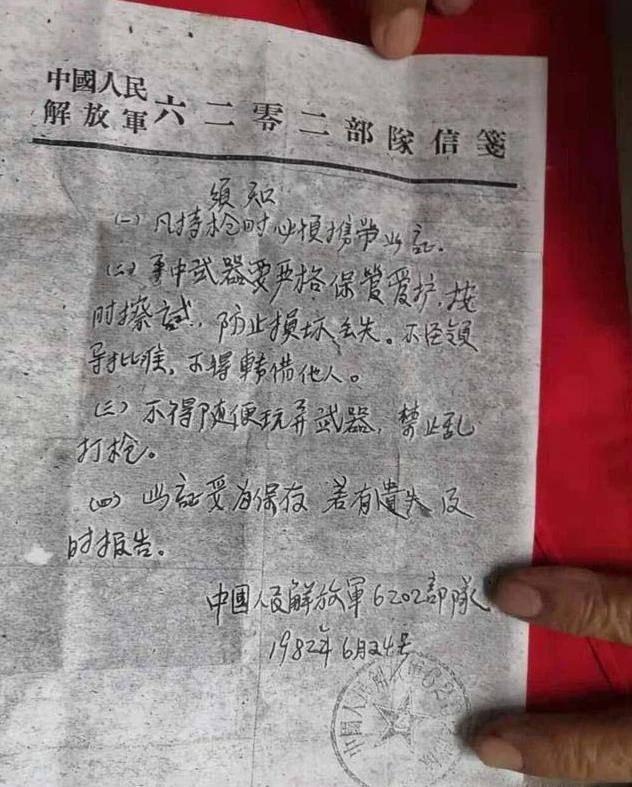 中國人民
解放軍六二零二部隊信箋
須知
(一)凡持枪时必須携带此証.
(二)手中武器要严格保管爱护,按
时擦試,防止损坏丢失。不经領
导批准,不得轉借他人。
(三)不得随便玩弄武器,禁止乱
打枪。
(四)此証要妥保存 若有遺失及
时报告。
中國人民解放軍6202部隊
1982年6月24号
中國人民解放軍62